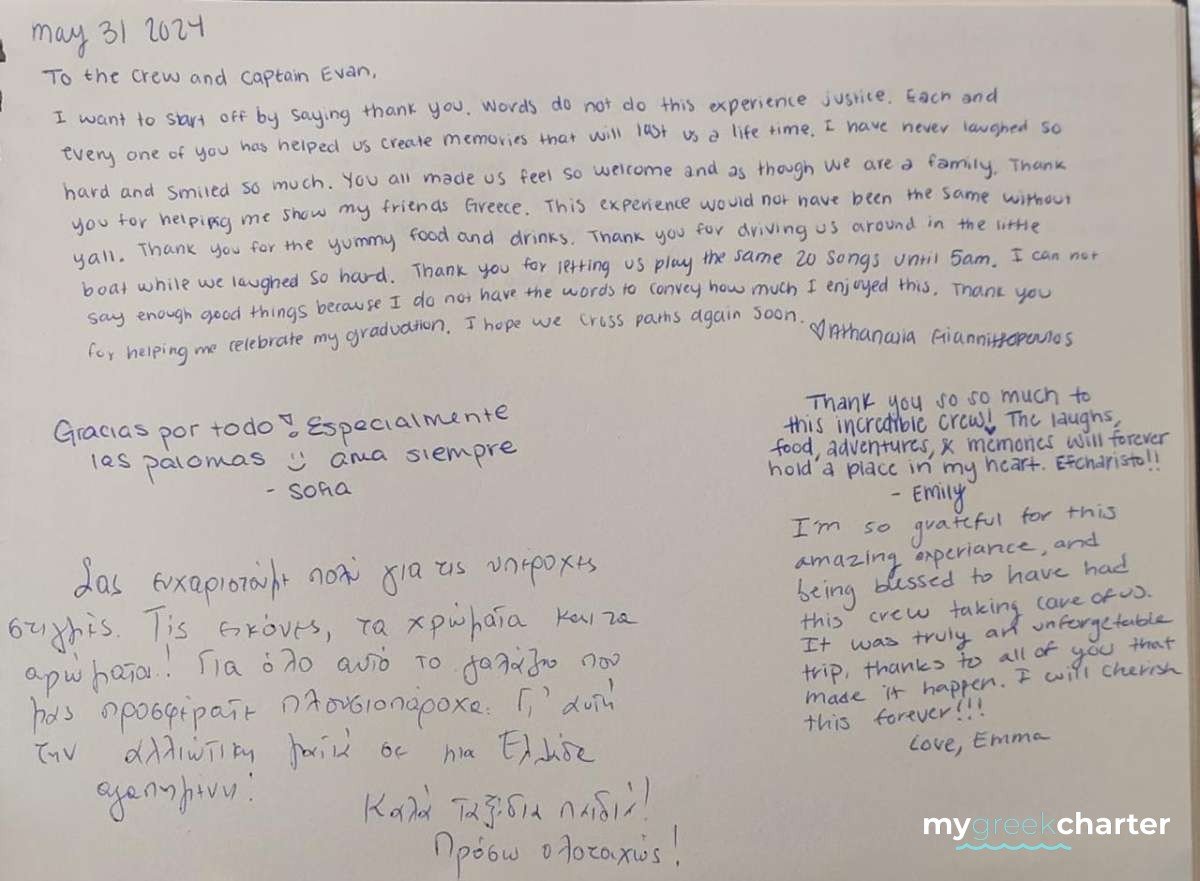 may 31 2024
To the crew and captain Evan,
I want to start off by saying thank you. Words do not do this experience justice. Each and
every one of you has helped us create memories that will last us a life time. I have never laughed so
hard and smiled so much. You all made us feel so welcome and as though we are a family. Thank
you for helping me show my friends Greece. This experience would not have been the same without
yall. Thank you for the yummy food and drinks. Thank you for driving us around in the little
boat while we laughed so hard. Thank you for letting us play the same 20 songs until 5am. I can not
say enough good things because I do not have the words to convey how much I enjoyed this. Thank you
for helping me celebrate my graduation. I hope we cross paths again soon.
♡Athanasia
Gracias por todo! Especialmente
las palomas :) ama siempre
- Sofia
Thank you so so much to
this incredible crew! The laughs,
food, adventures, & memories will forever
hold a place in my heart. Efcharisto!!
- Emily
I'm so grateful for this
amazing experiance, and
being blessed to have had
this crew taking care of us.
It was truly an unforgetable
trip, thanks to all of you that
made it happen. I will cherish
this forever!!!
Love, Emma
Σας ευχαριστούμε πολύ για τις υπέροχες
στιγμές. Τις εικόνες, τα χρώματα και τα
αρώματα! Για όλο αυτό το γαλάζιο που
μας προσφέρατε πλουσιοπάροχα. Γι' αυτή
την αλλιώτικη ματιά σε μια Ελλάδα
αγαπημένη!
Καλά ταξίδια παιδιά!
Πρόσω ολοταχώς!
mygreekcharter